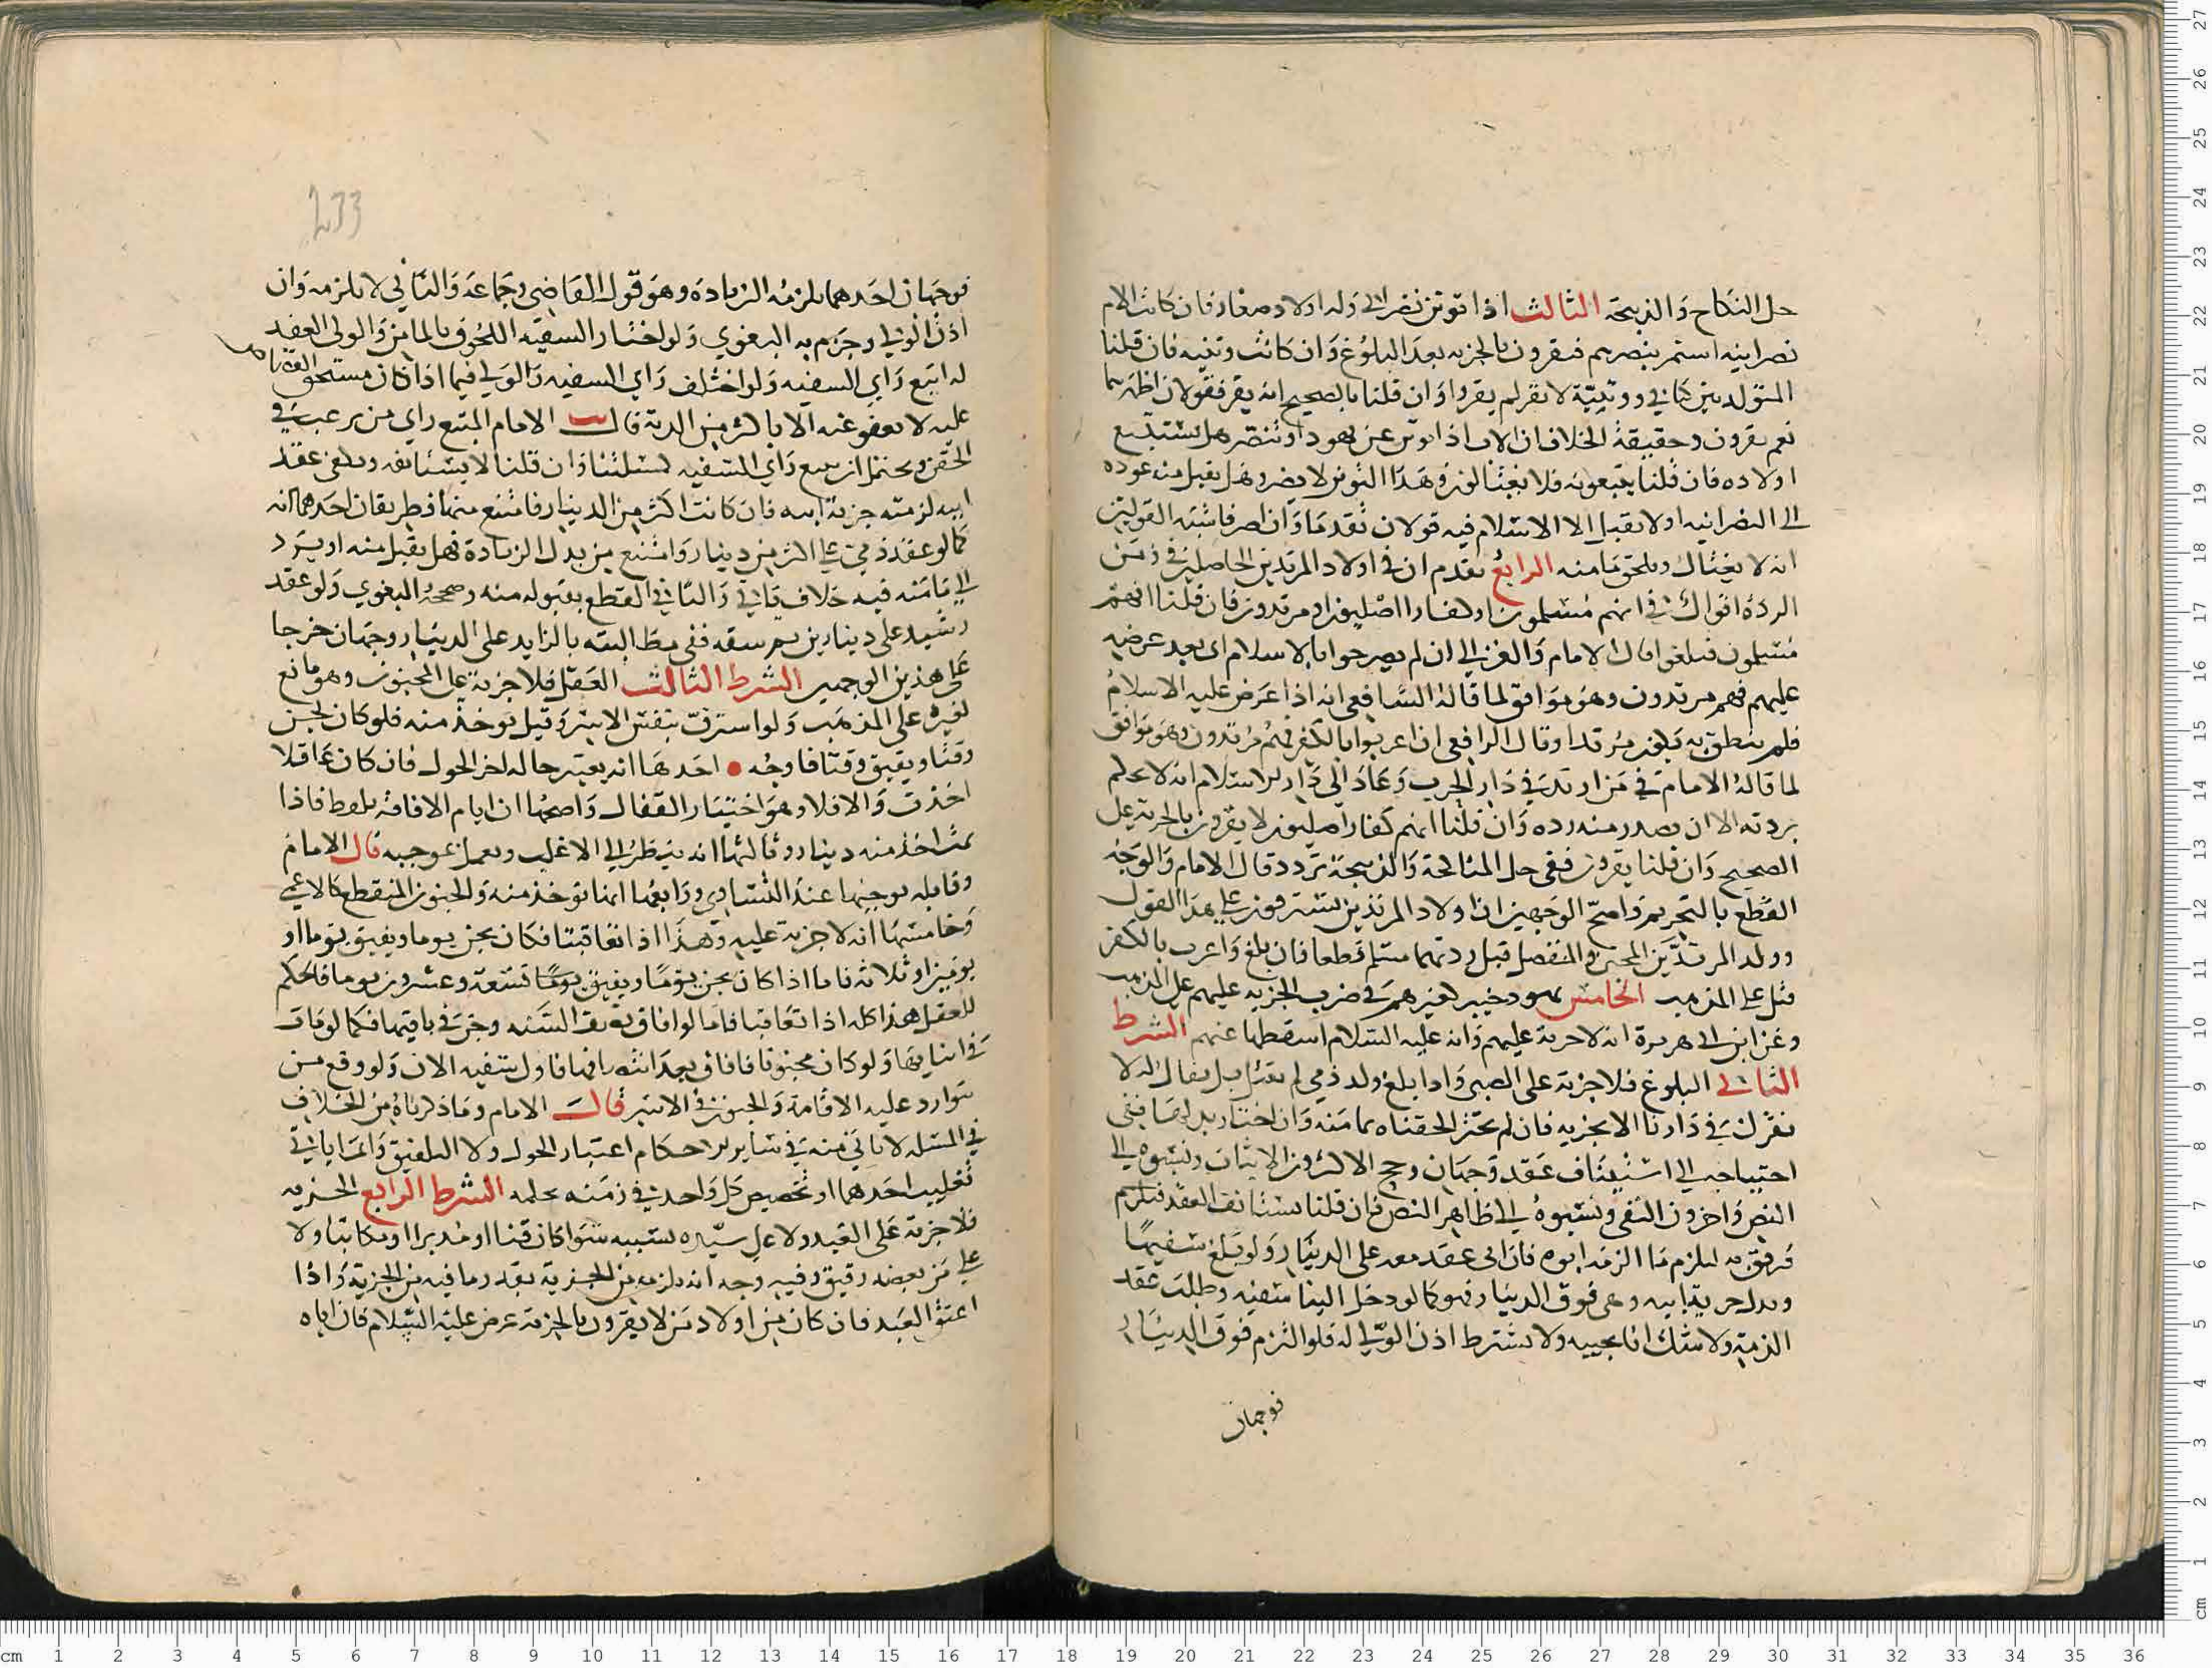 حل النكاح والذبيحة الثالث اذا توثن نصراني وله اولاد صغار فان كانت الام
نصرانية استمر تنصرهم فيقرون بالجزية بعد البلوغ وان كانت وثنية فان قلنا
المتولد بين كتابي ووثنية لا يقر لم يقروا وان قلنا بالصحيح انه يقر فقولان اظهرهما
نعم يقرون وحقيقة الخلاف ان الاب اذا توثن عن تهود او تنصر هل يستتبع
اولاده فان قلنا يتبعونه فلا يغتالون وهذا التوثن لا يضر وهل يقبل منه عوده
الى النصرانية او لا يقبل الا الاسلام فيه قولان تقدما وان اصر فاشبه القولين
انه لا يغتال ويلحق مامنه الرابع تقدم ان في اولاد المرتدين الحاصلين في زمن
الردة اقوالا في انهم مسلمون او كفار اصليون او مرتدون فان قلنا انهم
مسلمون فبلغوا قال الامام والغزالي ان لم يصرحوا بالاسلام اي بعد عرضه
عليهم فهم مرتدون وهو موافق لما قاله الشافعي انه اذا عرض عليه الاسلام
فلم ينطق به يكون مرتدا وقال الرافعي ان اعربوا بالكفر فهم مرتدون وهو موافق
لما قاله الامام في من ارتد في دار الحرب وعاد الى دار الاسلام انه لا يحكم
بردته الا ان تصدر منه رده وان قلنا انهم كفار اصليون لا يقرون بالجزية على
الصحيح وان قلنا يقرون ففي حل المناكحة والذبيحة تردد قال الامام والوجه
القطع بالتحريم واصح الوجهين ان اولاد المرتدين يسترقون على هذا القول
وولد المرتدين المجتن والمنفصل قبل ردتهما مسلم قطعا فان بلغ واعرب بالكفر
قتل على المذهب الخامس يهود خيبر كغيرهم في ضرب الجزية عليهم على المذهب
وعن ابن ابي هريرة انه لا جزية عليهم وانه عليه السلام اسقطها عنهم الشرط
الثاني البلوغ فلا جزية على الصبي واذا بلغ ولد ذمي لم يغتل بل يقال له لا
نقرك في دارنا الا بجزية فان لم يختر الحقناه بمامنه وان اختار بذلها ففي
احتياجه الى استيناف عقد وجهان رجح الاكثرون الاثبات ونسبوه الى
النص واخرون النفي ونسبوه الى ظاهر النص فان قلنا يستانف العقد فيلزم
فرفق به ليلزم ما التزمه ابوه فان ابى عقد معه على الدينار ولو بلغ سفيها
وبذل جزية ابيه وهي فوق الدينار فهو كما لو دخل الينا سفيه وطلب عقد
الذمة ولا شك انا نجيبه ولا يشترط اذن الولي له فلو التزم فوق الدينار
فوجهان
233
فوجهان احدهما يلزمه الزيادة وهو قول القاضي وجماعة والثاني لا يلزمه وان
اذن الولي وجزم به البغوي ولو اختار السفيه اللحوق بالمامن والولي العقد
له اتبع راي السفيه ولو اختلف راي السفيه والولي فيما اذا كان مستحق القصاص
عليه لا يعفو عنه الا باكثر من الدية قال الامام المتبع راي من يرغب في
الحقن ويحتمل ان يتبع راي السفيه كمسئلتنا وان قلنا لا يستانف ويكفي عقد
ابيه لزمته جزية ابيه فان كانت اكثر من الدينار فامتنع منها فطريقان احدهما انه
كما لو عقد ذمي على اكثر من دينار وامتنع من بذل الزيادة فهل يقبل منه او يرد
الى مامنه فيه خلاف ياتي والثاني القطع بقبوله منه وصححه البغوي ولو عقد
رشيد على دينارين ثم سفه ففي مطالبته بالزايد على الدينار وجهان خرجا
على هذين الوجهين الشرط الثالث العقل فلا جزية على المجنون وهو مانع
لغيره على المذهب ولو استرق بنفس الاسر وقيل توخذ منه فلو كان يجن
وقتا ويفيق وقتا فاوجه احدها انه يعتبر حاله اخر الحول فان كان عاقلا
اخذت والا فلا وهو اختيار القفال واصحها ان ايام الافاقة تلقط فاذا
تمت اخذ منه دينار وثالثها انه ينظر الى الاغلب ويعمل بموجبه قال الامام
وقابله بوجهها عند التساوي ورابعها انها توخذ منه والجنون المنقطع كالاغمي
وخامسها انه لا جزية عليه وهذا اذا تعاقبتا فكان يجن يوما ويفيق يوما او
يومين او ثلاثة فاما اذا كان يجن يوما ويفيق يوما تسعة وعشرون يوما فالحكم
للعقل هذا كله اذا تعاقبا فاما لو افاق نصف السنة وجن في باقيها فكما لو مات
في اثنايها ولو كان مجنونا فافاق بعد انتصافها فاول سنته الان ولو وقع من
توارد عليه الاقامة والجنون في الاسر قال الامام وما ذكرناه من الخلاف
في المسئلة لا ياتي منه في ساير الاحكام اعتبار الحول ولا التلفيق وانما ياتي
تغليب احدهما او تخصيص كل واحد في زمنه بحكمه الشرط الرابع الحرية
فلا جزية على العبد ولا على سيده بسببه سواء كان قنا او مدبرا او مكاتبا ولا
على من بعضه رقيق وفيه وجه انه يلزمه من الجزية بقدر ما فيه من الحرية واذا
اعتق العبد فان كان من اولاد من لا يقرون بالجزية عرض عليه السلام فان اباه